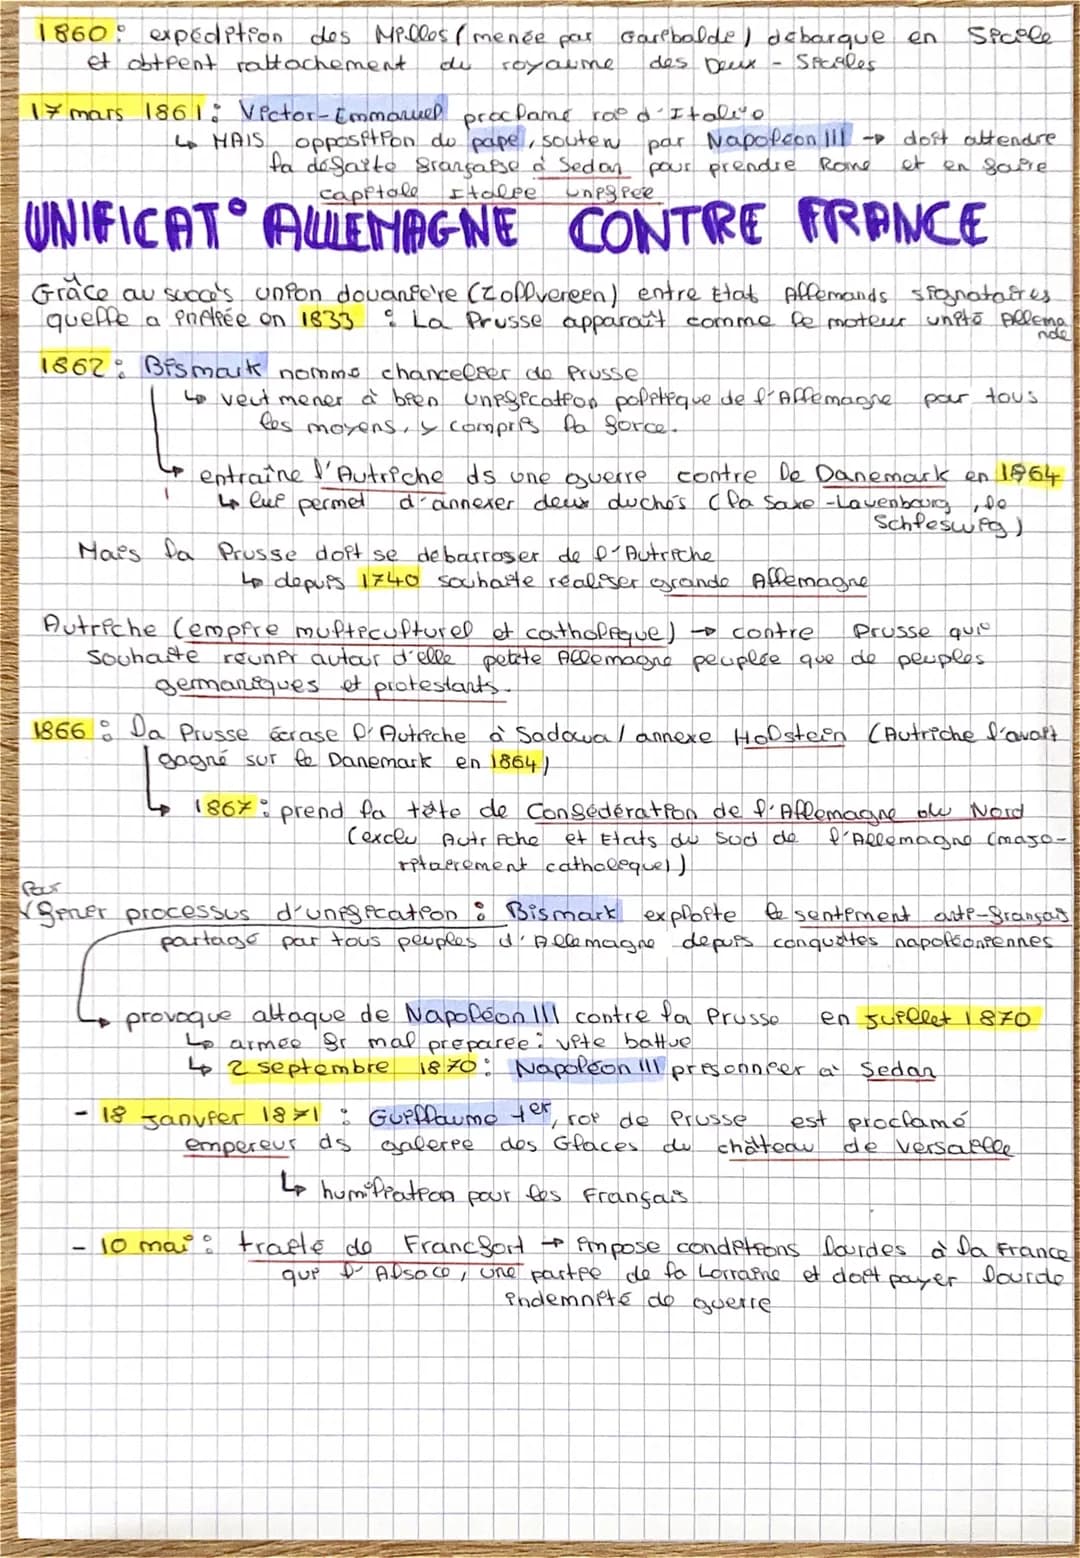 1860 : expédition des Milles (menée par Garibalde) débarque en Sicile
et obtient rattachement du royaume des Deux - Siciles
17 mars 1861 : Victor-Emmanuel proclamé roi d'Italie
↳ MAIS opposition du pape, soutenu par Napoléon III → doit attendre
la défaite française à Sedan pour prendre Rome et en faire
capitale Italie unifiée
UNIFICAT° ALLEMAGNE CONTRE FRANCE
Grâce au succès union douanière (Zollvereen) entre Etat Allemands signataires
quelle a initiée en 1833 : La Prusse apparaît comme le moteur unité Allema
nde
1862 : Bismark nommé chancelier de Prusse
↳ veut mener à bien unification politique de l'Allemagne par tous
les moyens, y compris la force.
↳ entraîne l'Autriche ds une guerre contre le Danemark en 1864
↳ lui permet d'annexer deux duchés (la Saxe-Lauenbourg, le
Schleswig)
Mais la Prusse doit se débarrasser de l'Autriche
↳ depuis 1740 souhaite réaliser grande Allemagne
Autriche (empire multiculturel et catholique) → contre Prusse qui
souhaite réunir autour d'elle petite Allemagne peuplée que de peuples
germaniques et protestants.
1866 : La Prusse écrase l'Autriche à Sadowa / annexe Holstein (Autriche l'avait
gagné sur le Danemark en 1864)
↳ 1867 : prend la tête de Confédération de l'Allemagne du Nord
(exclu Autriche et Etats du Sud de l'Allemagne (majo-
ritairement catholique))
Pour
finir processus d'unification : Bismark exploite le sentiment anti-français
partagé par tous peuples d'Allemagne depuis conquêtes napoléoniennes
↳ provoque attaque de Napoléon III contre la Prusse en juillet 1870
↳ armée fr mal préparée : vite battue
↳ 2 septembre 1870 : Napoléon III prisonnier à Sedan
- 18 janvier 1871 : Guillaume 1er, roi de Prusse est proclamé
empereur ds galerie des Glaces du château de Versaille
↳ humiliation pour les Français
- 10 mai : traité de Francfort → impose conditions lourdes à la France
qui l'Alsace, une partie de la Lorraine et doit payer lourde
indemnité de guerre